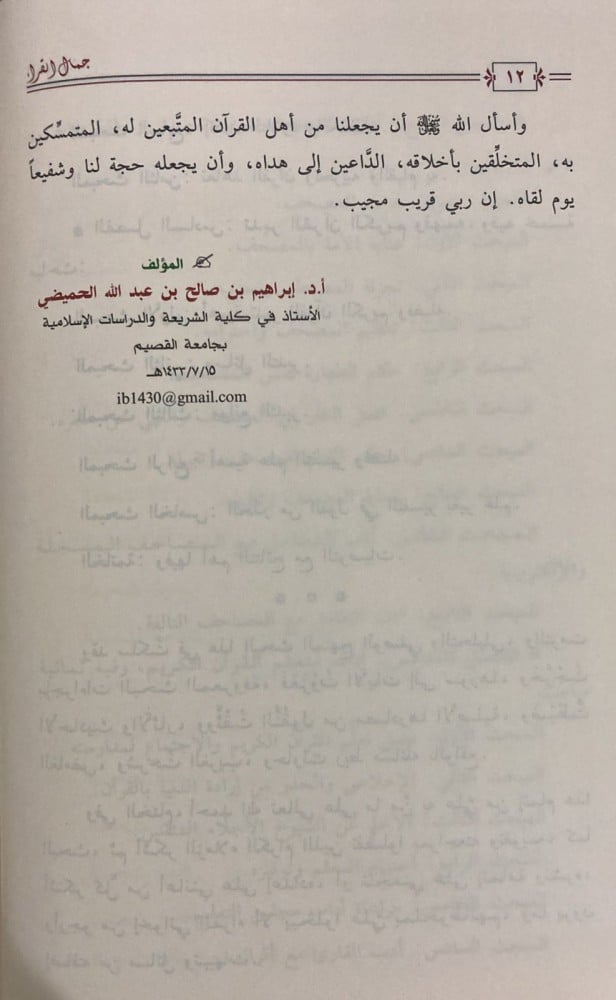 جمال القراء
١٢
وأسأل الله ﷻ أن يجعلنا من أهل القرآن المتَّبعين له، المتمسِّكين
به، المتخلِّقين بأخلاقه، الدَّاعين إلى هداه، وأن يجعله حجة لنا وشفيعاً
يوم لقاه. إن ربي قريب مجيب.
المؤلف
أ.د. إبراهيم بن صالح بن عبد الله الحميضي
الأستاذ في كلية الشريعة والدراسات الإسلامية
بجامعة القصيم
١٤٣٣/٧/١٥هـ
ib1430@gmail.com